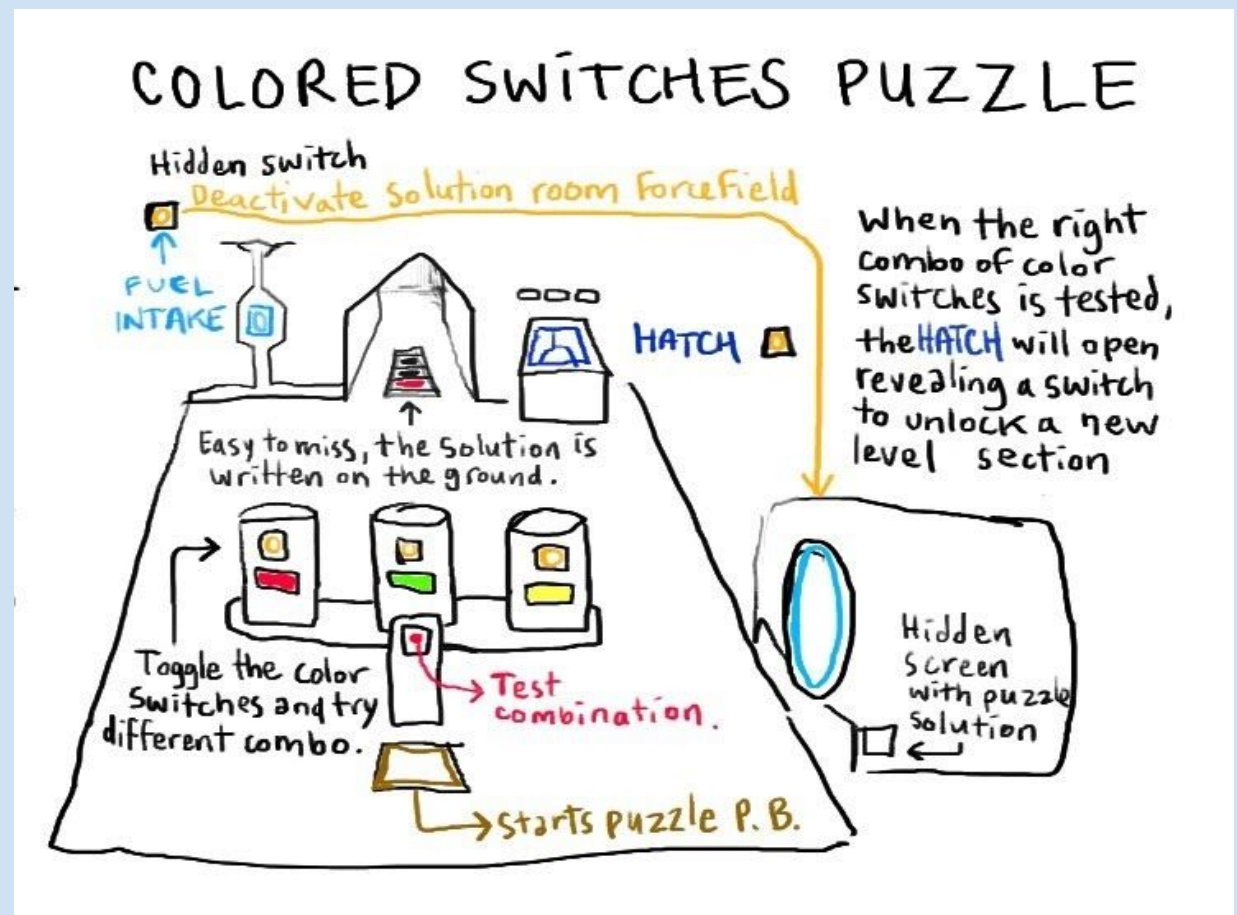 COLORED SWITCHES PUZZLE
Hidden switch
Deactivate Solution room ForceField
FUEL
INTAKE
HATCH
When the right
combo of color
switches is tested,
the HATCH will open
revealing a switch
to unlock a new
level section
Easy to miss, the solution is
written on the ground.
Toggle the color
switches and try
different combo.
Test
combination.
Hidden
screen
with puzzle
solution
Starts puzzle P. B.